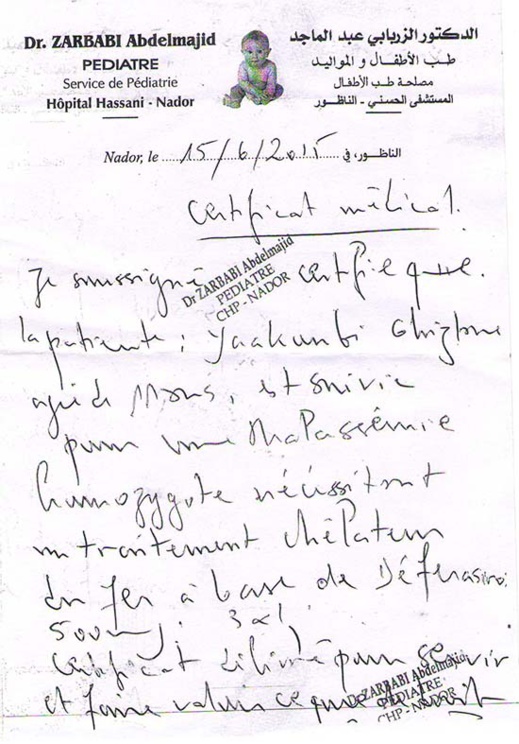 Dr. ZARBABI Abdelmajid
PEDIATRE
Service de Pédiatrie
Hôpital Hassani - Nador
الدكتور الزريابي عبد الماجد
طب الأطفال و المواليد
مصلحة طب الأطفال
المستشفى الحسني - الناظور
Nador, le 15/6/2015 الناظور، في
Certificat médical.
Je soussigné certifie que
Dr ZARBABI Abdelmajid
PEDIATRE
CHP - NADOR
la patiente : Yaakoubi
agée de 11 mois, est suivie
pour une thalassémie
homozygote nécessitant
un traitement chélateur
du fer à base de Déferasirox
500mg : 3x1
certificat délivré pour servir
et faire valoir ce que de droit
Dr ZARBABI Abdelmajid
PEDIATRE
CHP - NADOR